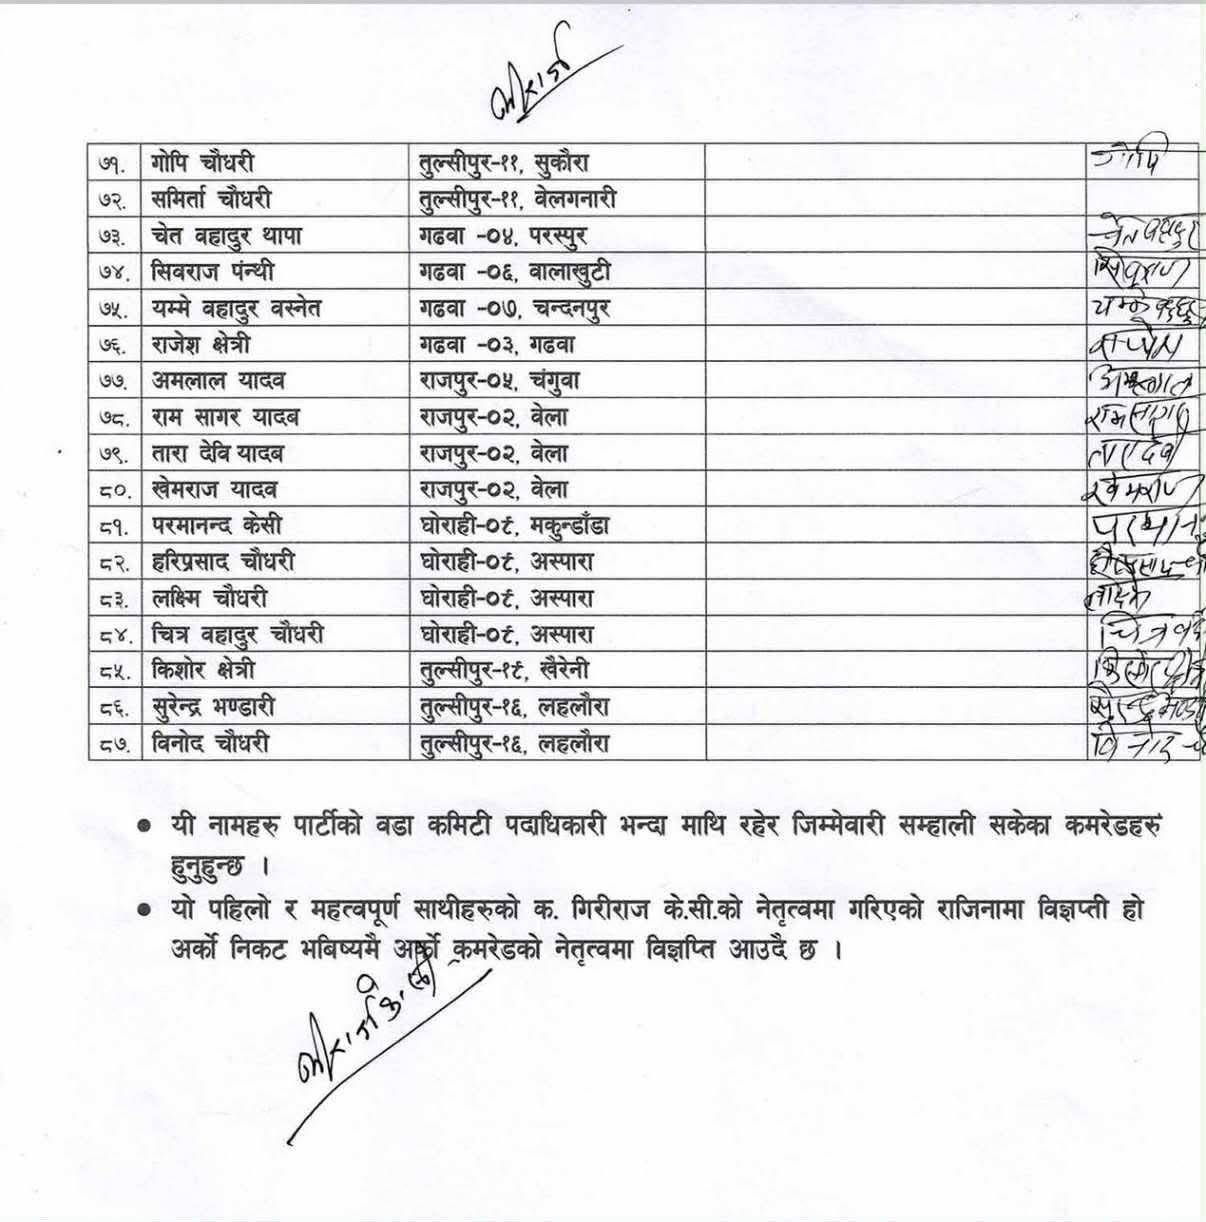 ७१. गोपि चौधरी तुल्सीपुर-११, सुकौरा गोपि
७२. समिर्ता चौधरी तुल्सीपुर-११, वेलगनारी
७३. चेत वहादुर थापा गढवा -०४, परस्पुर चेत बहादुर
७४. सिवराज पंन्थी गढवा -०६, वालाखुटी सिवराज
७५. यम्मे वहादुर वस्नेत गढवा -०७, चन्दनपुर
७६. राजेश क्षेत्री गढवा -०३, गढवा
७७. अमलाल यादव राजपुर-०५, चंगुवा
७८. राम सागर यादब राजपुर-०२, वेला रामसागर
७९. तारा देवि यादब राजपुर-०२, वेला
८०. खेमराज यादव राजपुर-०२, वेला खेमराज
८१. परमानन्द केसी घोराही-०९, मकुन्डाँडा
८२. हरिप्रसाद चौधरी घोराही-०९, अस्पारा
८३. लक्ष्मि चौधरी घोराही-०९, अस्पारा
८४. चित्र वहादुर चौधरी घोराही-०९, अस्पारा
८५. किशोर क्षेत्री तुल्सीपुर-१९, खैरेनी
८६. सुरेन्द्र भण्डारी तुल्सीपुर-१६, लहलौरा
८७. विनोद चौधरी तुल्सीपुर-१६, लहलौरा
● यी नामहरु पार्टीको वडा कमिटी पदाधिकारी भन्दा माथि रहेर जिम्मेवारी सम्हाली सकेका कमरेडहरु
हुनुहुन्छ ।
● यो पहिलो र महत्वपूर्ण साथीहरुको क. गिरीराज के.सी.को नेतृत्वमा गरिएको राजिनामा विज्ञप्ती हो
अर्को निकट भबिष्यमै अर्को कमरेडको नेतृत्वमा विज्ञप्ति आउदै छ ।